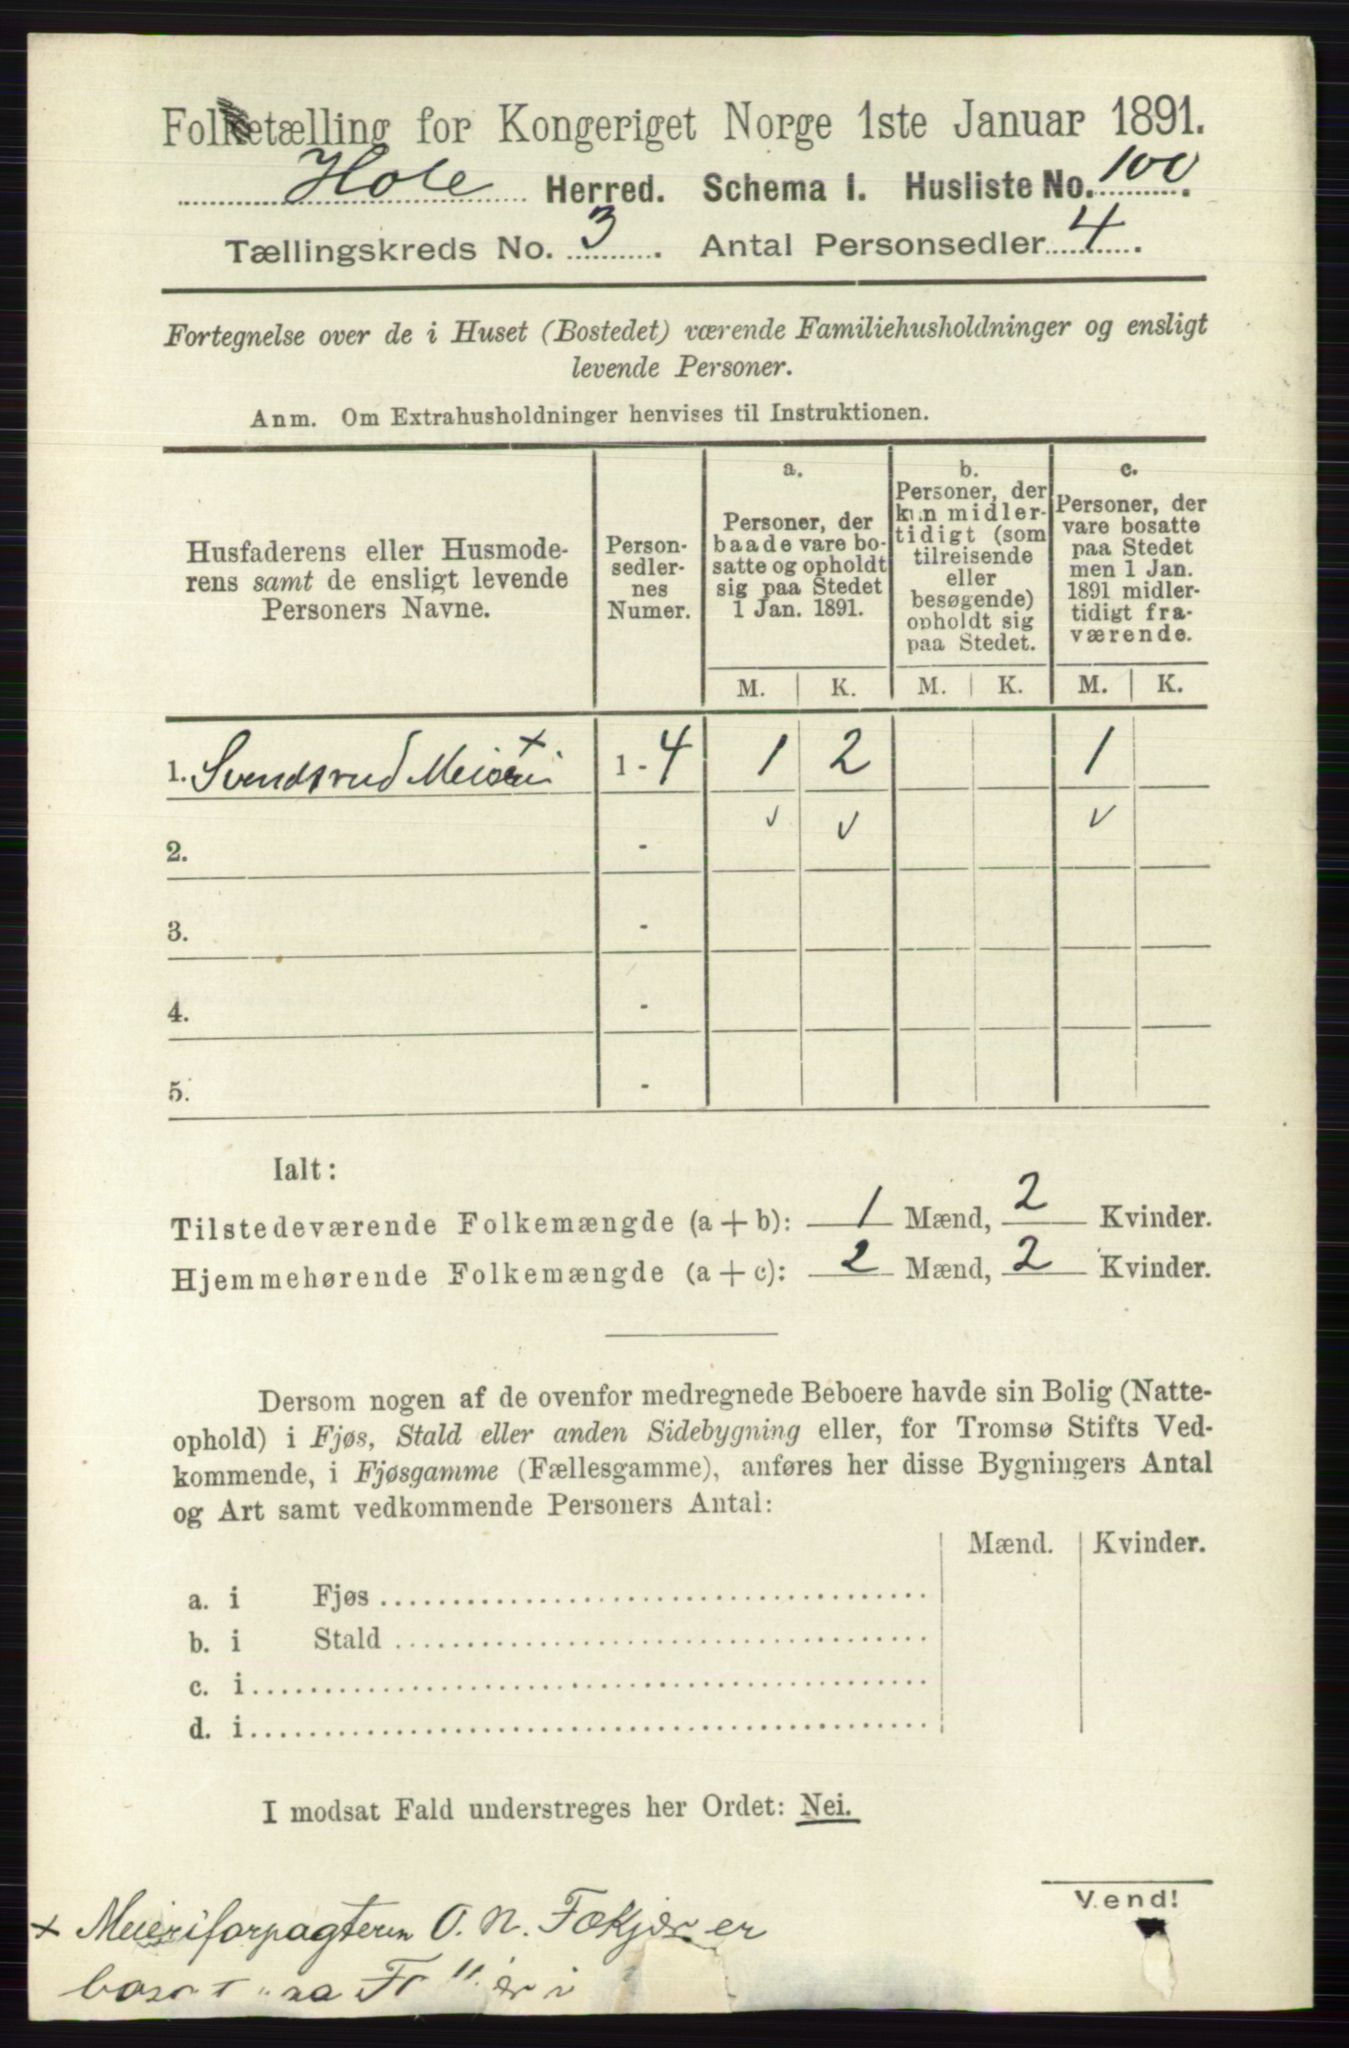 Folketælling for Kongeriget Norge 1ste Januar 1891.
Hole Herred. Schema I. Husliste No. 100.
Tællingskreds No. 3. Antal Personsedler 4.
Fortegnelse over de i Huset (Bostedet) værende Familiehusholdninger og ensligt
levende Personer.
Anm. Om Extrahusholdninger henvises til Instruktionen.
Husfaderens eller Husmode-
rens samt de ensligt levende
Personers Navne.
Person-
sedler-
nes
Numer.
a.
Personer, der
baade vare bo-
satte og opholdt
sig paa Stedet
1 Jan. 1891.
b.
Personer, der
kun midler-
tidigt (som
tilreisende
eller
besøgende)
opholdt sig
paa Stedet.
c.
Personer, der
vare bosatte
paa Stedet
men 1 Jan.
1891 midler-
tidigt fra-
værende.
M. K. M. K. M. K.
1. Svendsrud Meieri x 1 - 4 1 2 1
2. - v v v
3. -
4. -
5. -
Ialt:
Tilstedeværende Folkemængde (a + b): 1 Mænd, 2 Kvinder.
Hjemmehørende Folkemængde (a + c): 2 Mænd, 2 Kvinder.
Dersom nogen af de ovenfor medregnede Beboere havde sin Bolig (Natte-
ophold) i Fjøs, Stald eller anden Sidebygning eller, for Tromsø Stifts Ved-
kommende, i Fjøsgamme (Fællesgamme), anføres her disse Bygningers Antal
og Art samt vedkommende Personers Antal:
Mænd. Kvinder.
a. i Fjøs
b. i Stald
c. i
d. i
I modsat Fald understreges her Ordet: Nei.
Vend!
x Meieriforpagteren O. N. Fokjær er